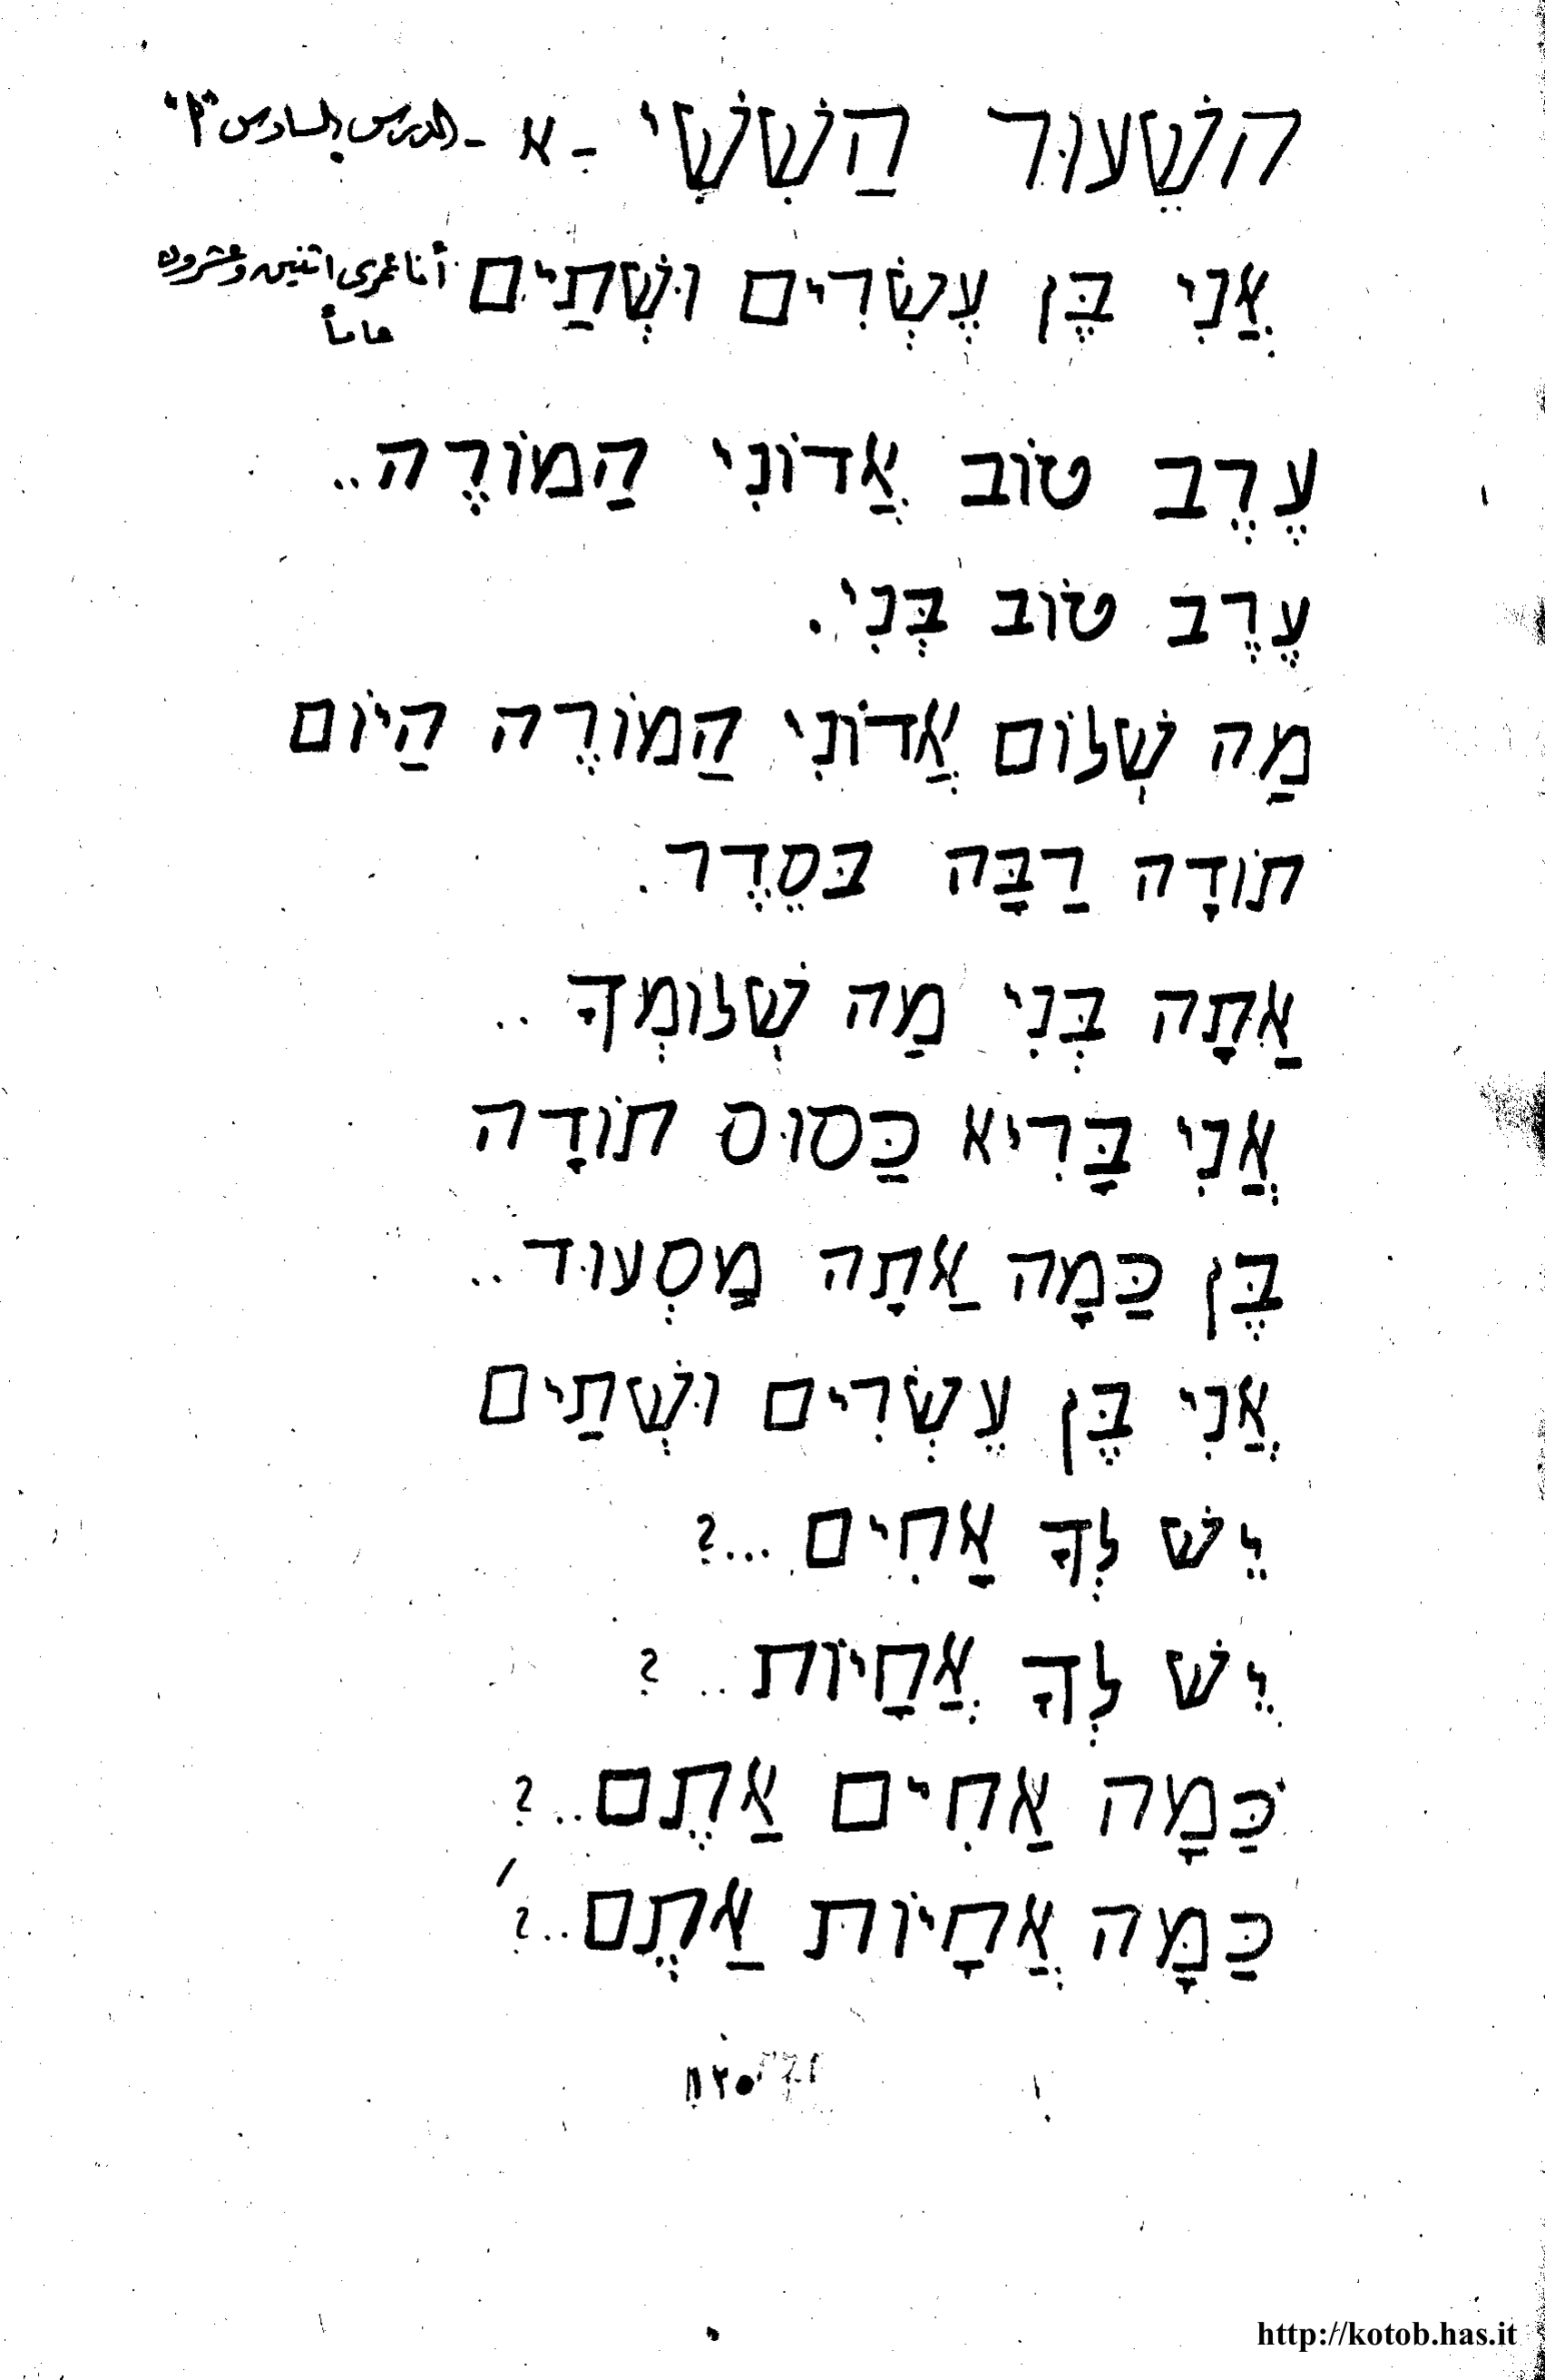 השֵעוּר הַשִשִי - א - الدرس السادس "أ"
אֲנִי בֶּן עֶשְׂרִים וּשְׁתַיִם أنا عمرى اثنين وعشرون
عاماً
עֶרֶב טוֹב אֲדוֹנִי הַמוֹרֶה..
עֶרֶב טוֹב בְּנִי.
מַה שְׁלוֹם אֲדוֹנִי הַמוֹרֶה הַיוֹם
תוֹדָה רַבָּה בּסֵדֶר.
אַתָה בְּנִי מַה שְׁלוֹמְךָ..
אֲנִי בָּרִיא כַּסוּס תוֹדָה
בֶּן כַּמָה אַתָה מַסְעוּד..
אֲנִי בֶּן עֶשְׂרִים וּשְׁתַיִם
יֵש לְךָ אָחִים...?
יֵש לְךָ אֲחָיוֹת..?
כַּמָה אַחִים אַתֶם..?
כַּמָּה אֲחָיוֹת אַתֶם..?
http://kotob.has.it